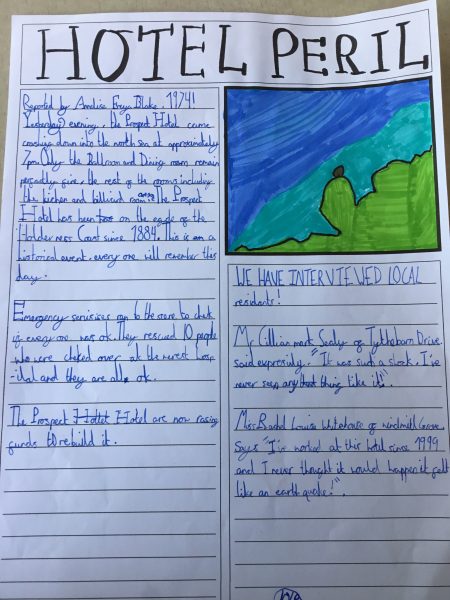 HOTEL PERIL
Reported by Annalise Freya Blake. 1974!
Yesterday evening, the Prospect Hotel came
crashing down into the north sea at approximately
7pm. Only the Ballroom and Dining room remain
perfectly fine, the rest of the rooms including
the kichen and billiard room. The Prospect
Hotel has been on the eagde of the
Holderness Coast since 1884. This is am a
historical event, every one will remember this
day.
Emergency serivises run to the scene to chek
if every one was ok. They rescued 10 people
who were cheked over at the nerest hosp
-ital and they are all ok.
The Prospect Hotlet Hotel are now rasing
funds to rebuild it.
WE HAVE INTERVIEWED LOCAL
residents!
Mr Gillian mark Sealy of Tythebarn Drive,
said "It was such a shock, I've
never seen any thing like it!".
Miss Rachel Louise whitehouse of windmill Grove
says "I've worked at this hotel since 1999
and I never thought it would happen it felt
like an earth quake!".